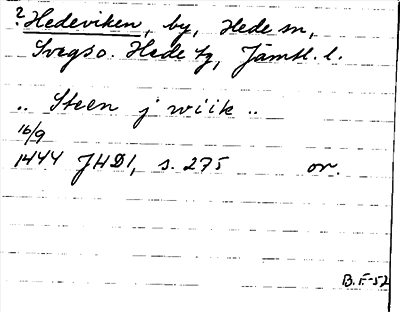 ? Hedeviken, by, Hede sn,
Svegs o. Hede tg, Jämtl. l.
.. Steen j wiik ..
16/9
1444 JHD1, s. 275 or.
B.F-52